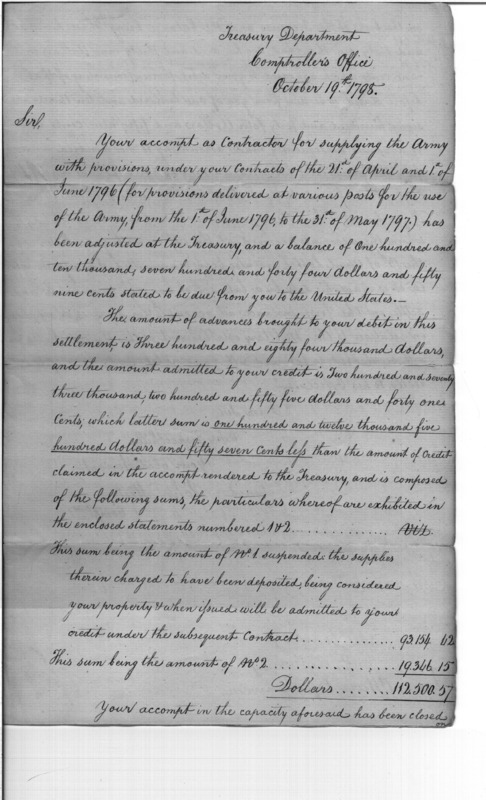 Treasury Department
Comptroller's Office
October 19th 1798.
Sir,
Your accompt as Contractor for supplying the Army
with provisions, under your Contracts of the 21st of April and 1st of
June 1796 (for provisions delivered at various posts for the use
of the Army, from the 1st of June 1796, to the 31st of May 1797.) has
been adjusted at the Treasury, and a balance of One hundred and
ten thousand, seven hundred and forty four dollars and fifty
nine cents stated to be due from you to the United States.—
The amount of advances brought to your debit in this
settlement is Three hundred and eighty four thousand dollars,
and the amount admitted to your credit is Two hundred and seventy
three thousand, two hundred and fifty five dollars and forty one
Cents; which latter sum is one hundred and twelve thousand five
hundred dollars and fifty seven Cents less than the amount of Credit
claimed in the accompt rendered to the Treasury, and is composed
of the following sums, the particulars whereof are exhibited in
the enclosed statements numbered 1 & 2
This sum being the amount of No 1 suspended: the supplies
therein charged to have been deposited, being considered
your property & when issued will be admitted to your
credit under the subsequent Contract. 93154 62
This sum being the amount of No 2 19,366 15
Dollars 112.500.57
Your accompt in the capacity aforesaid has been closed
on